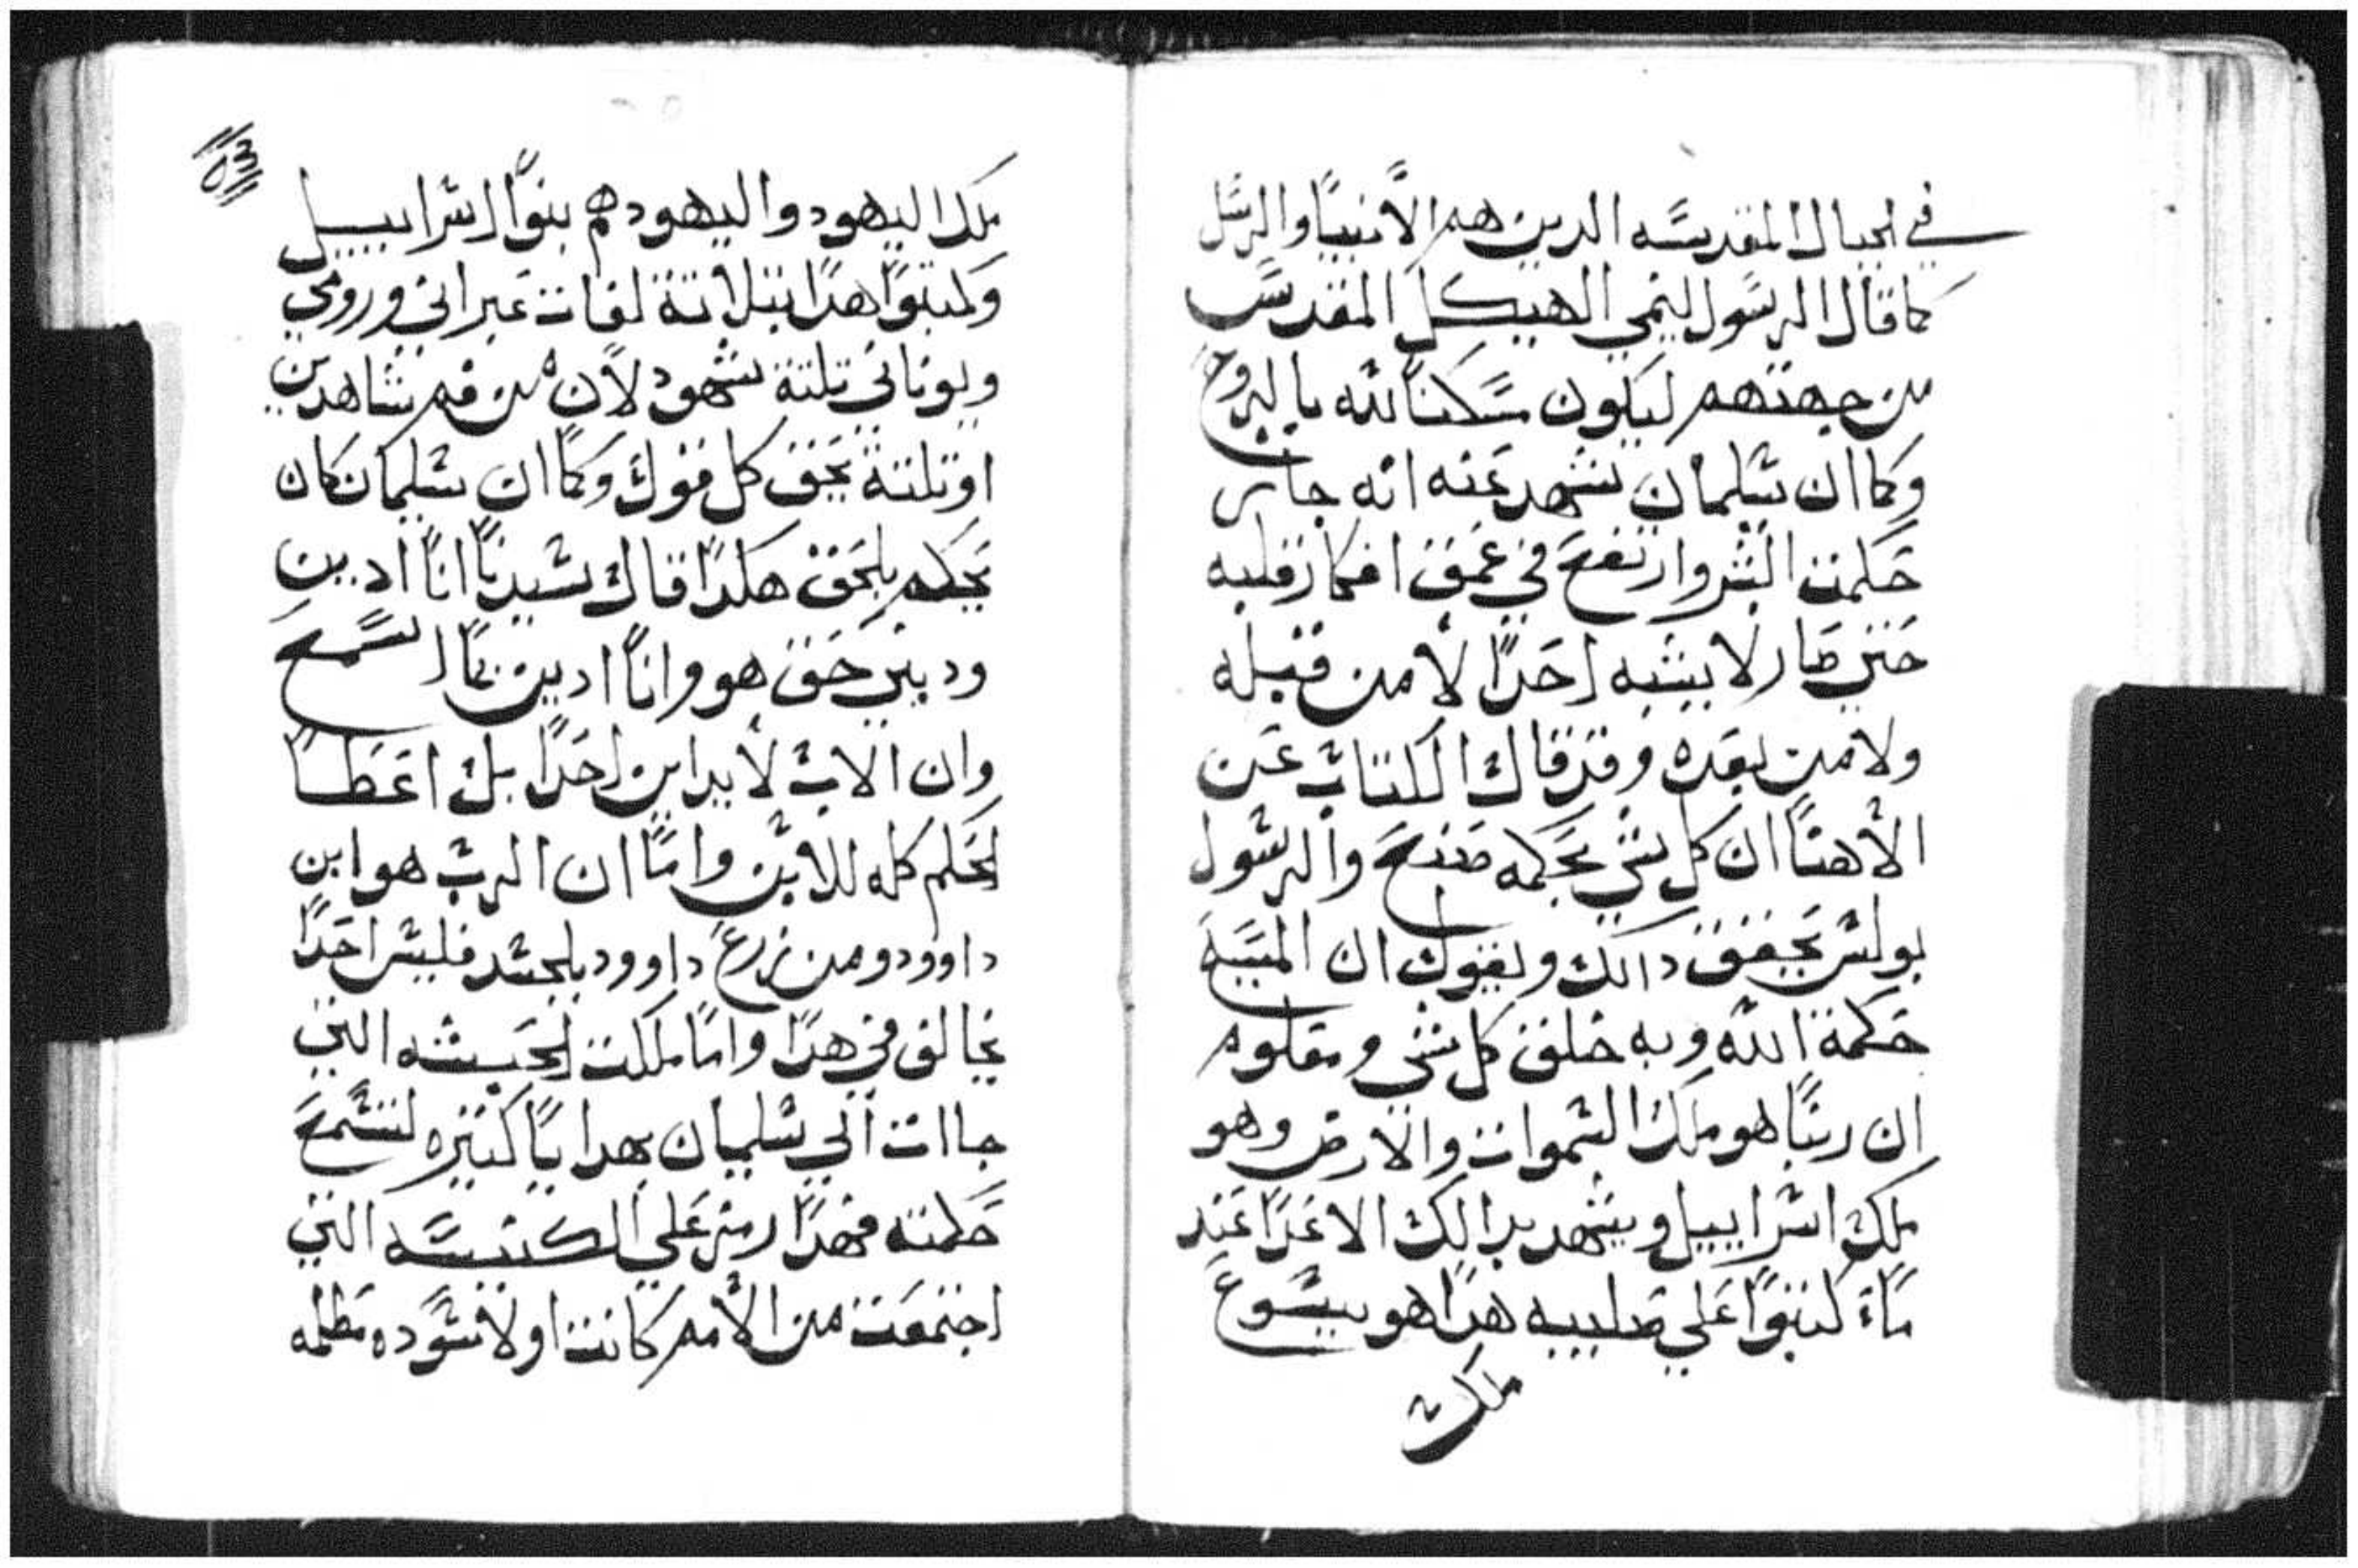 في الجبال المقدسه الدين هم الأنبيا والرسل
كما قال الرسول لينمي الهيكل المقدس
من جهتهم ليكون مسكنا لله بالروح
وكما ان سليمان نشهد عنه انه حاز
حكمت البشر وارتفع في عمق افكار قلبه
حتي صار لا يشبه احدا لا من قبله
ولا من بعده وقد قال الكتاب عن
الاهنا ان كل شي بحكمه صنع والرسول
بولس يحقق دالك ويقول ان المسيح
حكمة الله وبه خلق كل شي ومعلوم
ان ربنا هو ملك السموات والارض وهو
ملك اسراييل ويشهد بدالك الاعدا عند
ماء كتبوا علي صليبه هدا هو يسوع
ملك
٥٣
ملك اليهود واليهود هم بنوا اسراييل
وكتبوا هدا بتلاتة لغات عبراني ورومي
ويوناني تلتة شهود لأن من فم شاهدين
او تلتة يحق كل قول وكما ان سليمان كان
يحكم بالحق هكدا قال سيدنا انا ادين
وديني حق هو وانا ادين كما اسمع
وان الاب لا يدين احدا بل اعطا
الحكم كله للابن واما ان الرب هو ابن
داوود ومن زرع داوود بالجسد فليس احدا
يخالف في هدا واما ملكت الحبشه التي
جاات الي سليمان بهدايا كتيره لتسمع
حكمته فهدا رمز علي الكنيسه التي
اجتمعت من الأمم كانت اولا سوده مظلمه